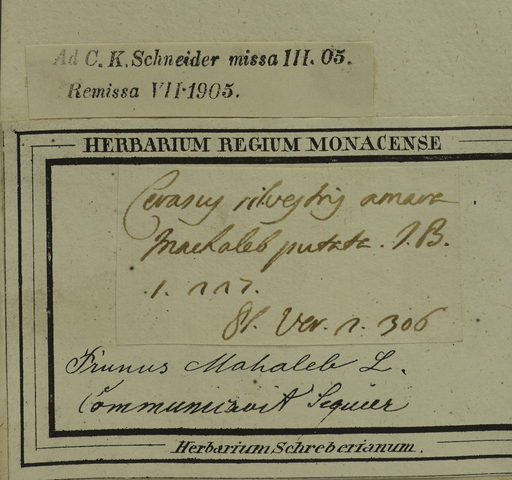 Ad C. K. Schneider missa III. 05.
Remissa VII 1905.
HERBARIUM REGIUM MONACENSE
Cerasus silvestris amara
Mahaleb putata. J.B.
.1. 227.
Pl. Ver. 2. 306
Prunus Mahaleb L.
Communicavit Seguier
Herbarium Schreberianum.